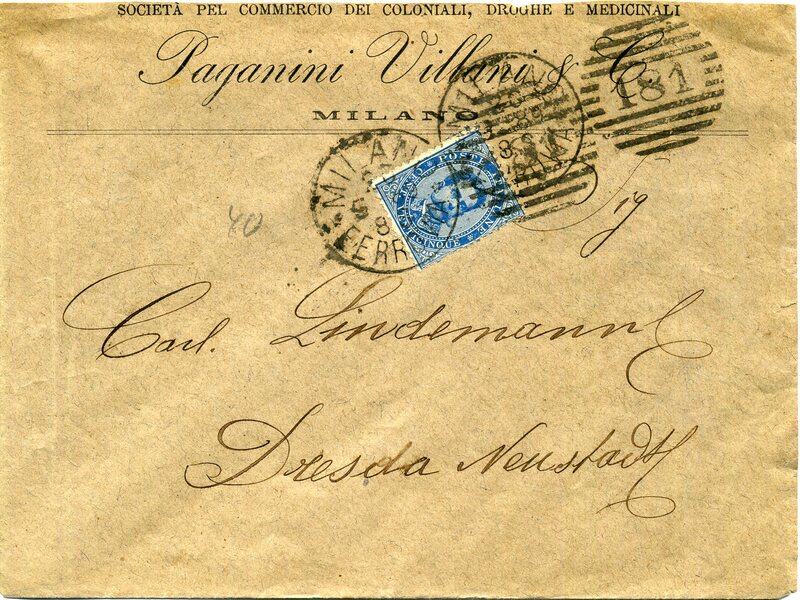 SOCIETÀ PEL COMMERCIO DEI COLONIALI, DROGHE E MEDICINALI
Paganini Villani & C.
MILANO
181
MILANO
MILAN
FERR
POSTE
CINQUE
40
Sig
Carl. Lindemann
Dresda Neustadt